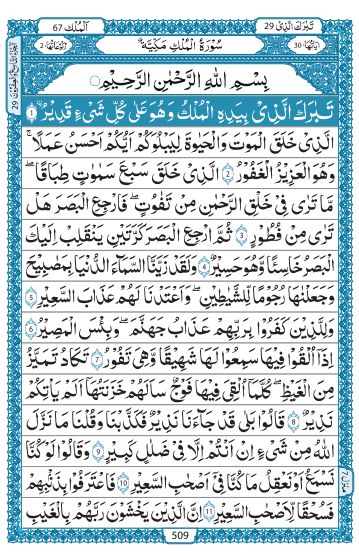 اَلْمُلْك 67
تَبٰرَكَ الَّذِىْ 29
رُكُوْعَاتُهَا 2
سُوْرَةُ الْمُلْكِ مَكِّيَّةٌ
اٰيَاتُهَا 30
بِسْمِ اللّٰهِ الرَّحْمٰنِ الرَّحِيْمِ
تَبٰرَكَ الَّذِىْ بِيَدِهِ الْمُلْكُ وَهُوَ عَلٰى كُلِّ شَىْءٍ قَدِيْرُ ۙ ۝1
الَّذِىْ خَلَقَ الْمَوْتَ وَالْحَيٰوةَ لِيَبْلُوَكُمْ اَيُّكُمْ اَحْسَنُ عَمَلًا ؕ
وَهُوَ الْعَزِيْزُ الْغَفُوْرُ ۙ ۝2 الَّذِىْ خَلَقَ سَبْعَ سَمٰوٰتٍ طِبَاقًا ؕ
مَا تَرٰى فِىْ خَلْقِ الرَّحْمٰنِ مِنْ تَفٰوُتٍ ؕ فَارْجِعِ الْبَصَرَ هَلْ
تَرٰى مِنْ فُطُوْرٍ ۝3 ثُمَّ ارْجِعِ الْبَصَرَ كَرَّتَيْنِ يَنْقَلِبْ اِلَيْكَ
الْبَصَرُ خَاسِئًا وَّهُوَ حَسِيْرٌ ۝4 وَلَقَدْ زَيَّنَّا السَّمَآءَ الدُّنْيَا بِمَصَابِيْحَ
وَجَعَلْنٰهَا رُجُوْمًا لِّلشَّيٰطِيْنِ وَاَعْتَدْنَا لَهُمْ عَذَابَ السَّعِيْرِ ۝5
وَلِلَّذِيْنَ كَفَرُوْا بِرَبِّهِمْ عَذَابُ جَهَنَّمَ ؕ وَبِئْسَ الْمَصِيْرُ ۝6
اِذَاۤ اُلْقُوْا فِيْهَا سَمِعُوْا لَهَا شَهِيْقًا وَّهِىَ تَفُوْرُ ۙ ۝7 تَكَادُ تَمَيَّزُ
مِنَ الْغَيْظِ ؕ كُلَّمَاۤ اُلْقِىَ فِيْهَا فَوْجٌ سَاَلَهُمْ خَزَنَتُهَاۤ اَلَمْ يَاْتِكُمْ
نَذِيْرٌ ۝8 قَالُوْا بَلٰى قَدْ جَآءَنَا نَذِيْرٌ فَكَذَّبْنَا وَقُلْنَا مَا نَزَّلَ
اللّٰهُ مِنْ شَىْءٍ اِنْ اَنْتُمْ اِلَّا فِىْ ضَلٰلٍ كَبِيْرٍ ۝9 وَقَالُوْا لَوْ كُنَّا
نَسْمَعُ اَوْ نَعْقِلُ مَا كُنَّا فِىْۤ اَصْحٰبِ السَّعِيْرِ ۝10 فَاعْتَرَفُوْا بِذَنْۢبِهِمْ
فَسُحْقًا لِّاَصْحٰبِ السَّعِيْرِ ۝11 اِنَّ الَّذِيْنَ يَخْشَوْنَ رَبَّهُمْ بِالْغَيْبِ
509